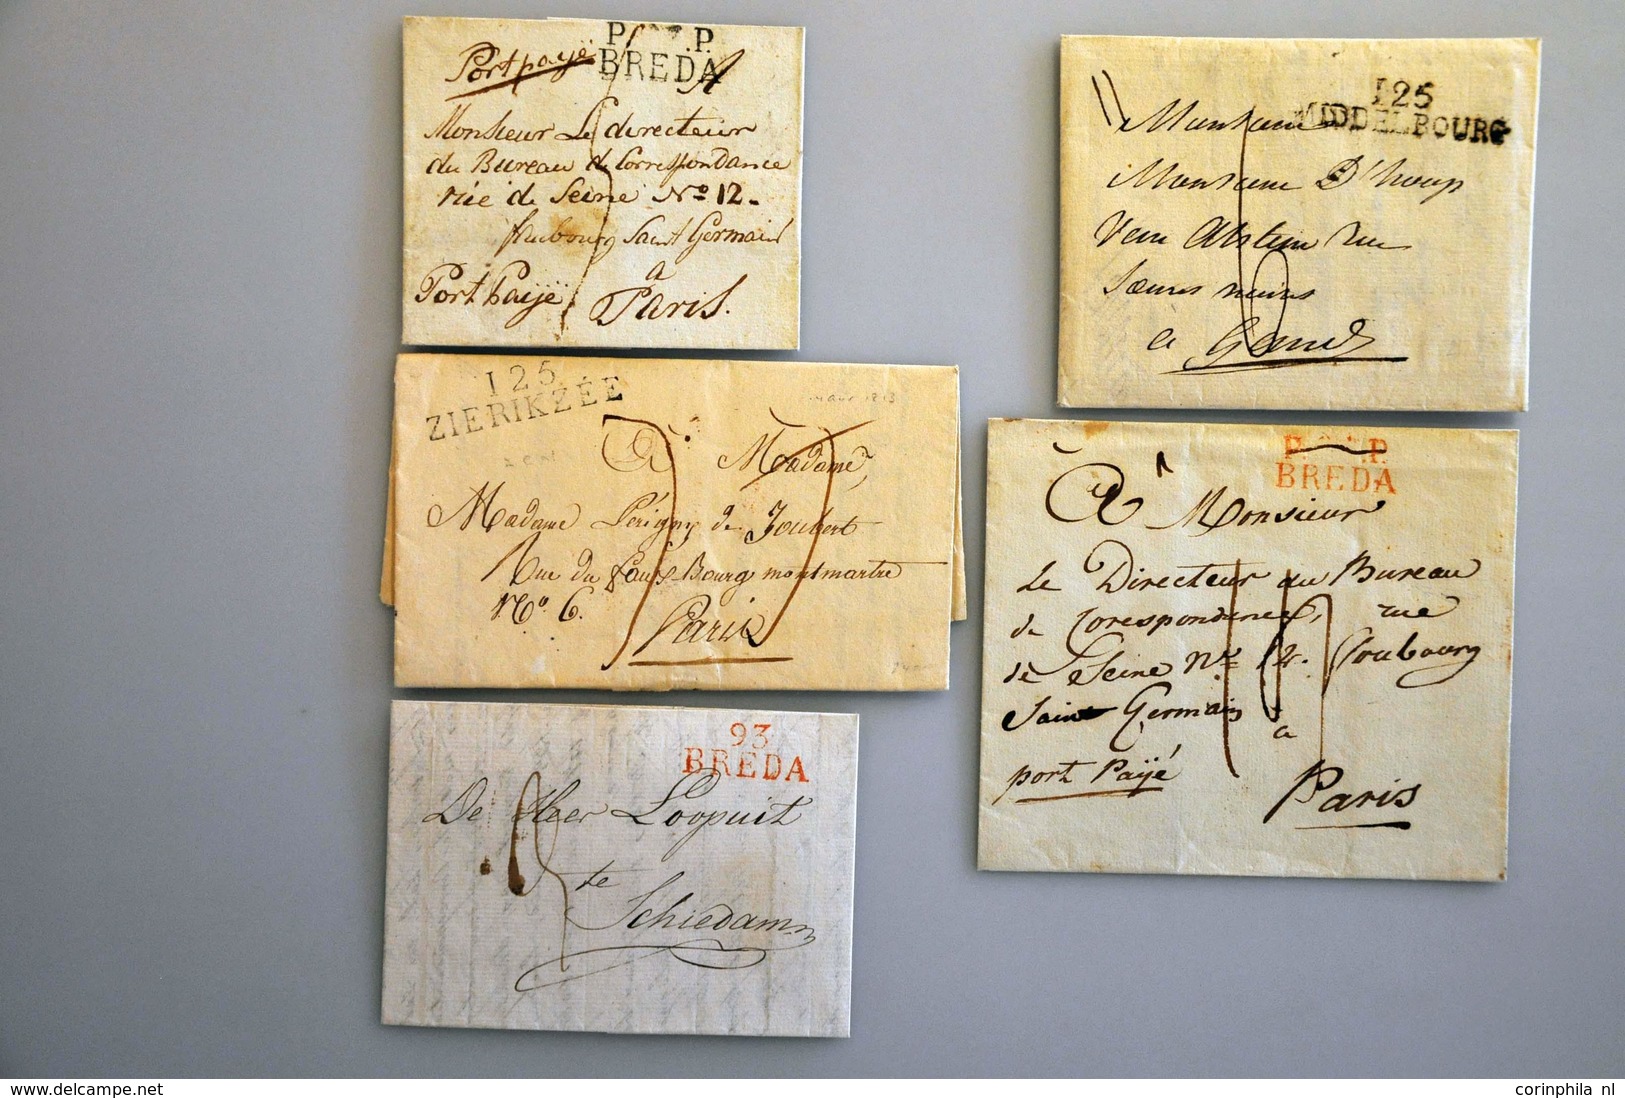 Port payé
P. P.
BREDA
Monsieur Le directeur
du Bureau de Correspondance
rüe de Seine No 12.
faubourg Saint Germain
a
Port Paÿé
Paris.
125
MIDDELBOURG
Monsieur
Monsieur D'hoop
rue
Sœurs noires
a Gand
125
ZIERIKZÉE
A Madame,
Madame Périgny de Joubert
Rue du faux-Bourg montmartre
No. 6.
Paris
P. P.
BREDA
A Monsieur
Le Directeur du Bureau
de Corespondence, rue
de Seine No 12. Foubourg
Saint Germain
a
port Paÿé
Paris
93
BREDA
De Heer Loopuit
te
Schiedam
www.delcampe.net
corinphila nl